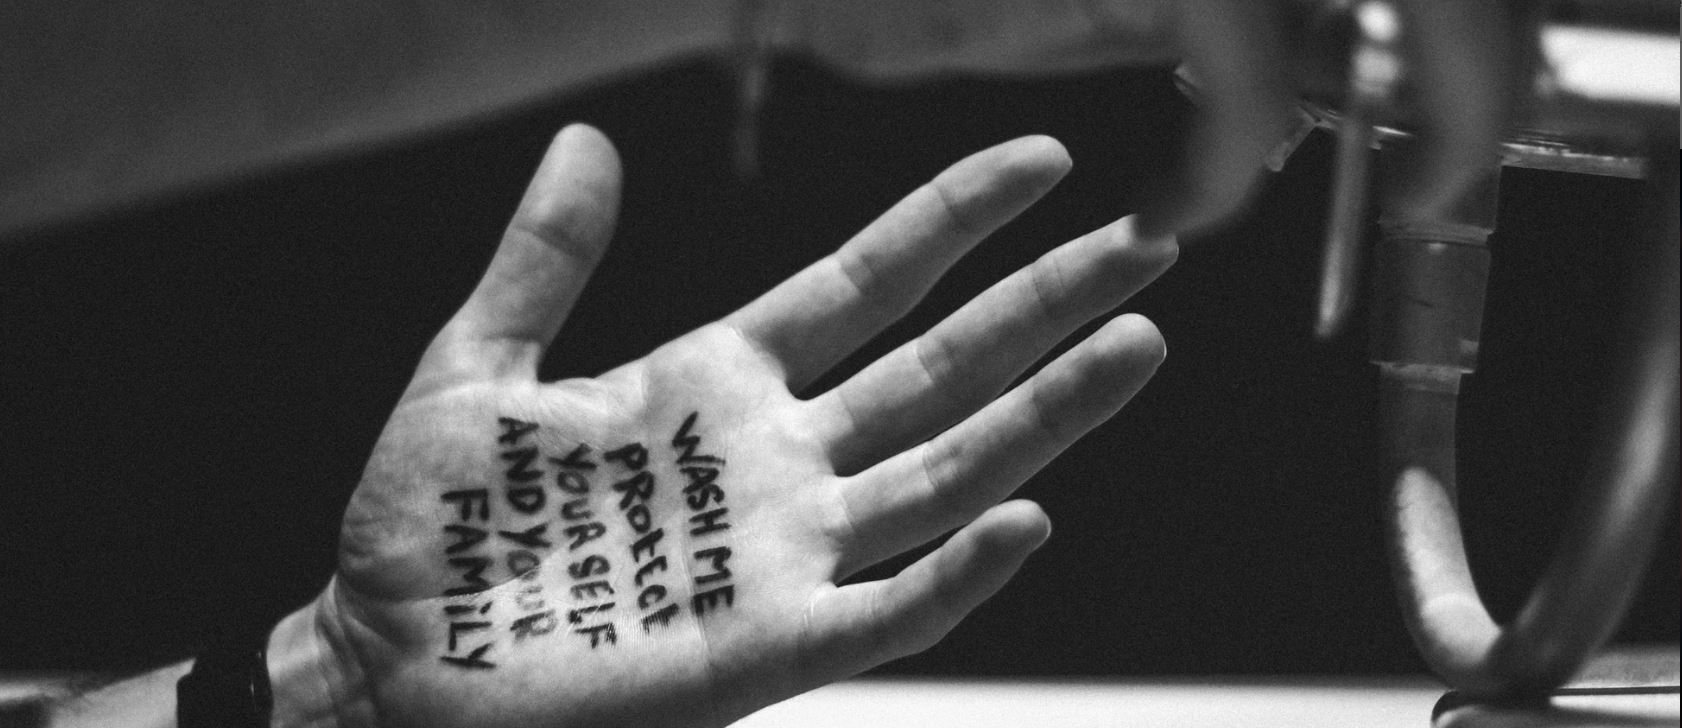 WASH ME
PROtEct
YOURSELF
AND YOUR
FAMiLY